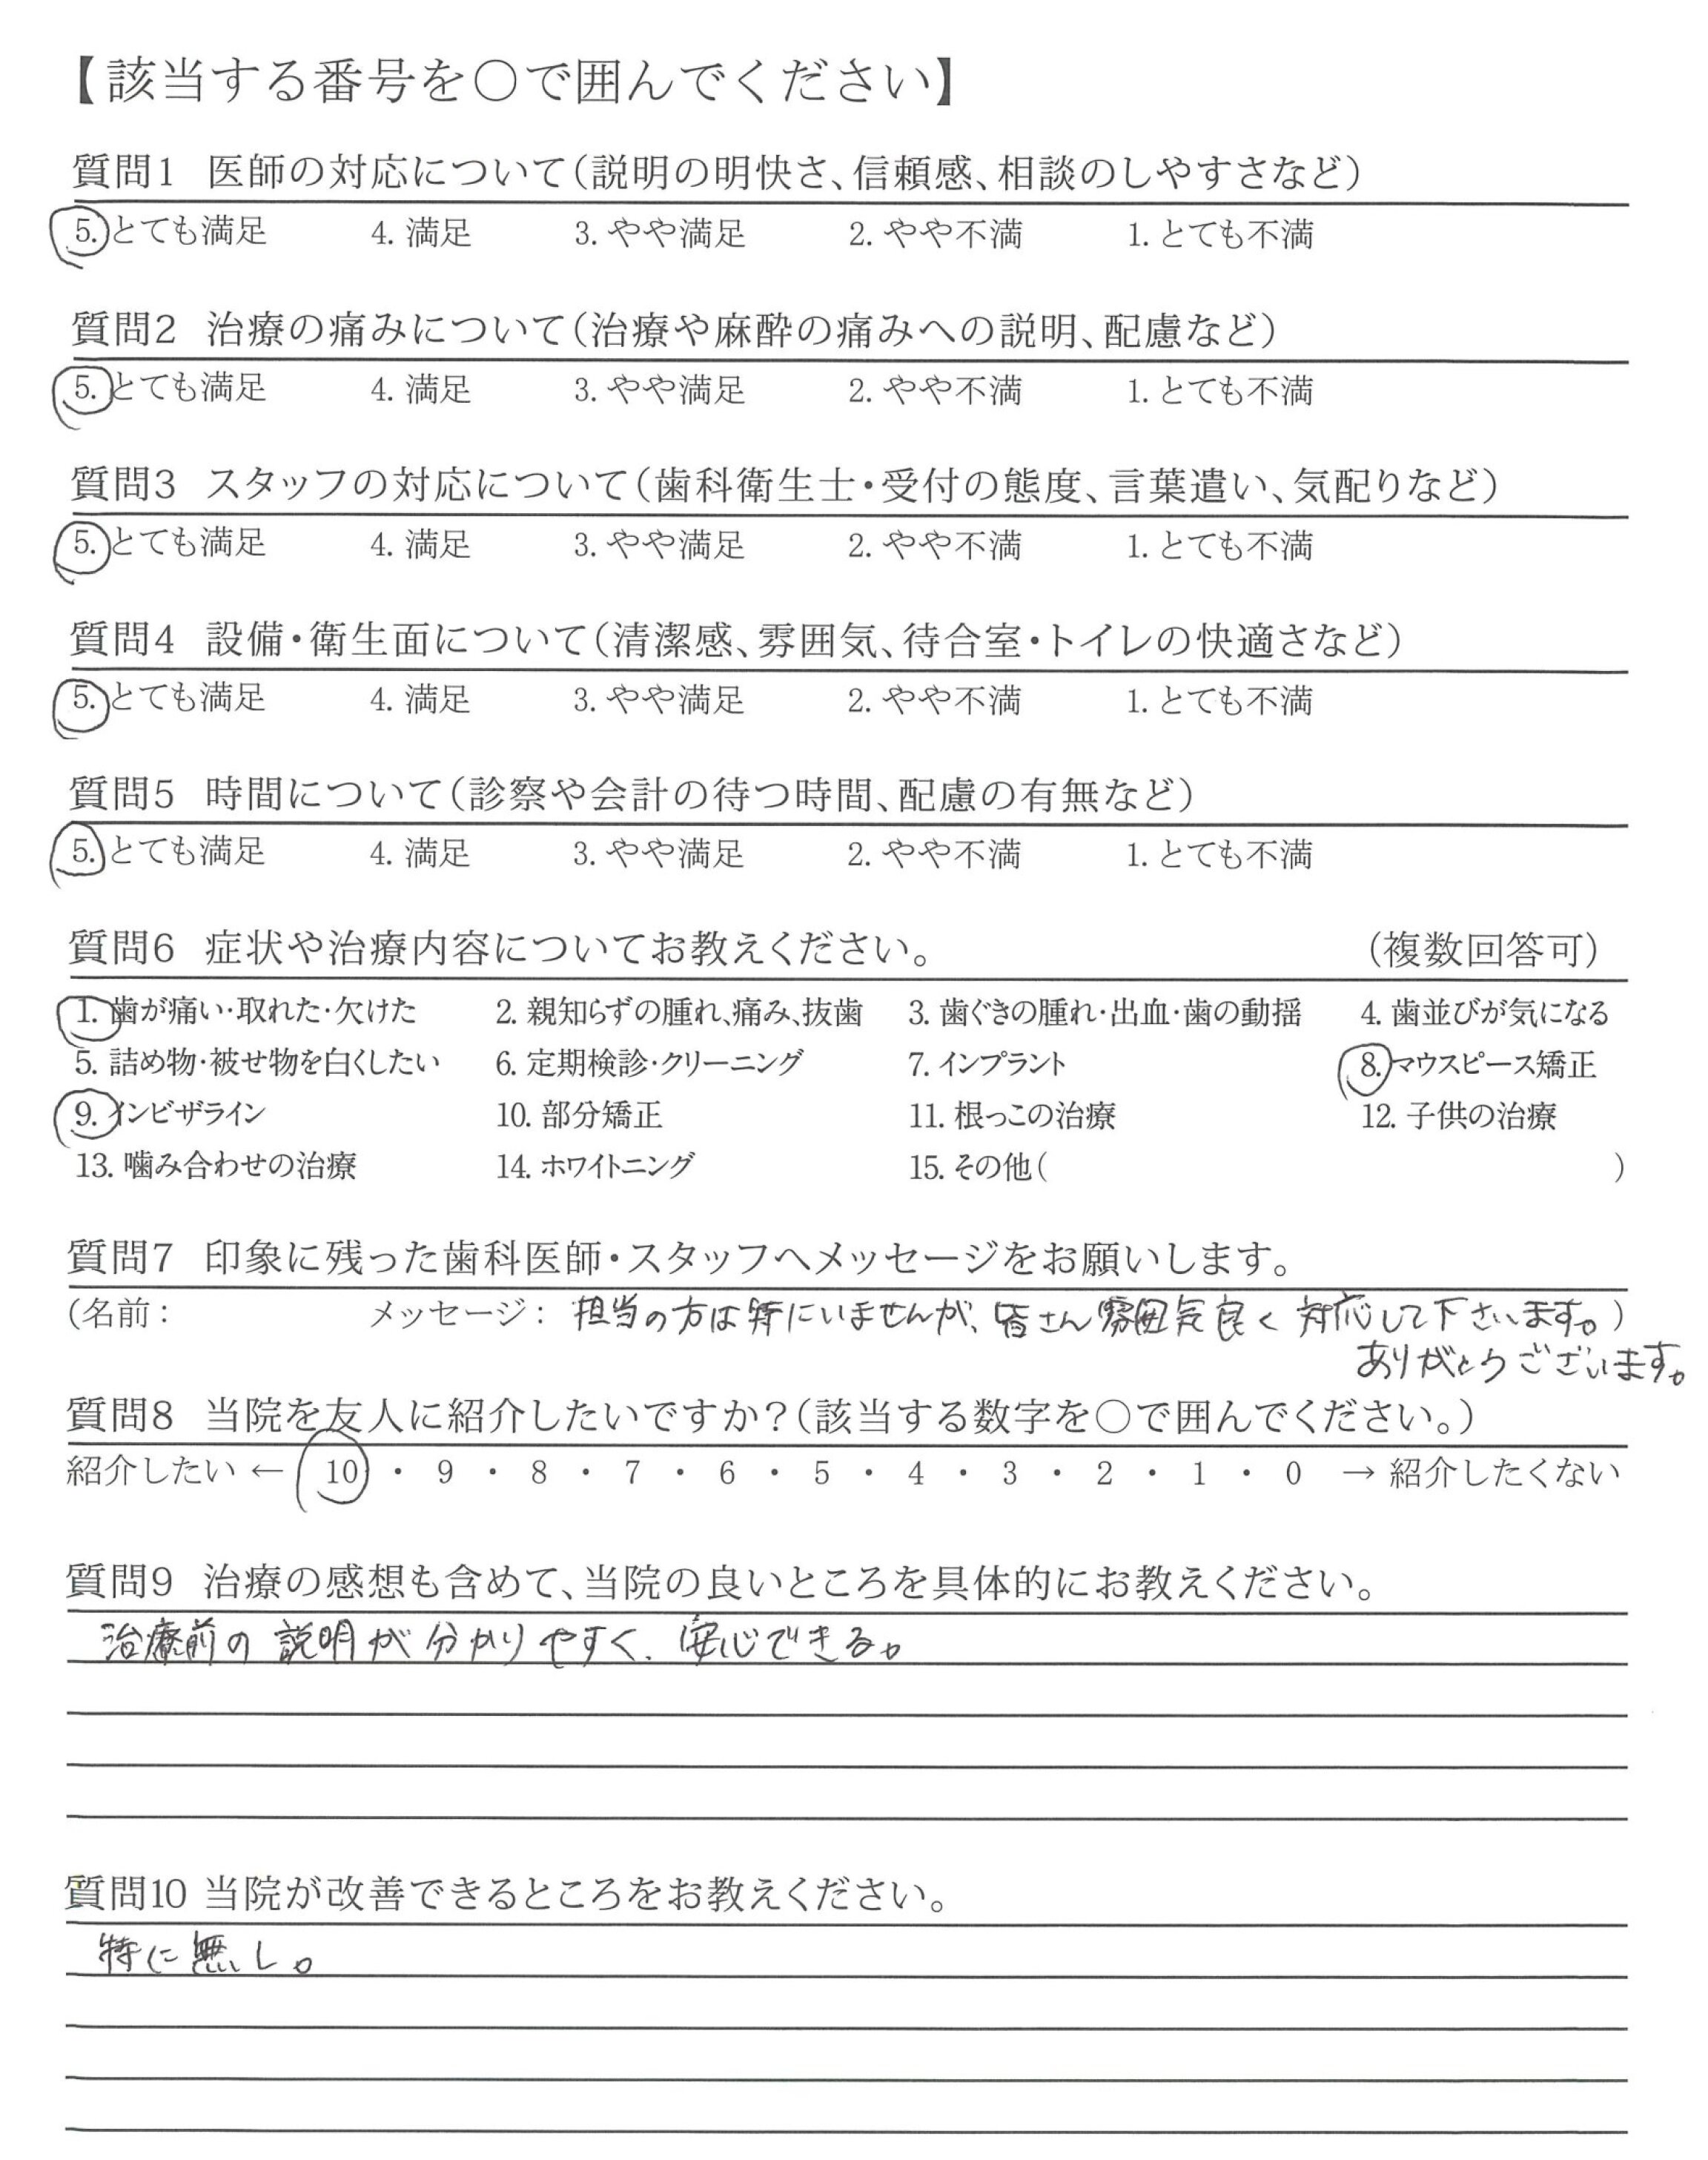 【該当する番号を○で囲んでください】
質問1 医師の対応について(説明の明快さ、信頼感、相談のしやすさなど)
5. とても満足 4. 満足 3. やや満足 2. やや不満 1. とても不満
質問2 治療の痛みについて(治療や麻酔の痛みへの説明、配慮など)
5. とても満足 4. 満足 3. やや満足 2. やや不満 1. とても不満
質問3 スタッフの対応について(歯科衛生士・受付の態度、言葉遣い、気配りなど)
5. とても満足 4. 満足 3. やや満足 2. やや不満 1. とても不満
質問4 設備・衛生面について(清潔感、雰囲気、待合室・トイレの快適さなど)
5. とても満足 4. 満足 3. やや満足 2. やや不満 1. とても不満
質問5 時間について(診察や会計の待つ時間、配慮の有無など)
5. とても満足 4. 満足 3. やや満足 2. やや不満 1. とても不満
質問6 症状や治療内容についてお教えください。 (複数回答可)
1. 歯が痛い・取れた・欠けた 2. 親知らずの腫れ、痛み、抜歯 3. 歯ぐきの腫れ・出血・歯の動揺 4. 歯並びが気になる
5. 詰め物・被せ物を白くしたい 6. 定期検診・クリーニング 7. インプラント 8. マウスピース矯正
9. インビザライン 10. 部分矯正 11. 根っこの治療 12. 子供の治療
13. 噛み合わせの治療 14. ホワイトニング 15. その他( )
質問7 印象に残った歯科医師・スタッフへメッセージをお願いします。
(名前: メッセージ: 担当の方は特にいませんが、皆さん雰囲気良く対応して下さいます。)
ありがとうございます。
質問8 当院を友人に紹介したいですか?(該当する数字を○で囲んでください。)
紹介したい ← 10 ・ 9 ・ 8 ・ 7 ・ 6 ・ 5 ・ 4 ・ 3 ・ 2 ・ 1 ・ 0 → 紹介したくない
質問9 治療の感想も含めて、当院の良いところを具体的にお教えください。
治療前の説明が分かりやすく、安心できる。
質問10 当院が改善できるところをお教えください。
特に無し。